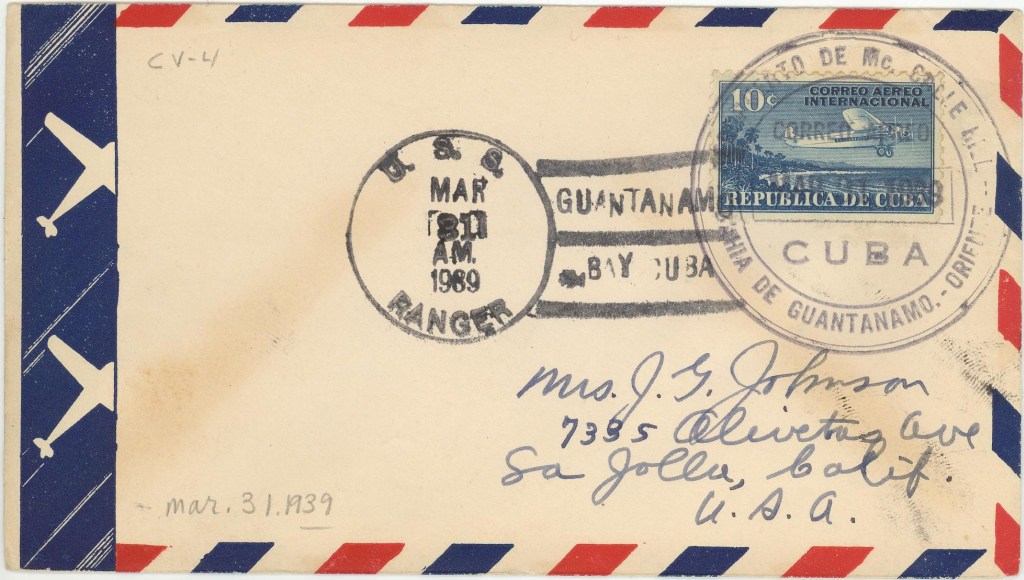 CV-4
U. S. S.
MAR
31
AM.
1939
RANGER
GUANTANAM
BAY CUBA
10¢
CORREO AEREO
INTERNACIONAL
REPUBLICA DE CUBA
DE Mc. CALLE HILL - ORIENTE.- BAHIA DE GUANTANAMO.-
CORREO AEREO
MAR 31 1939
CUBA
Mrs. J. G. Johnson
7335 Olivetas Ave
La Jolla, Calif.
U. S. A.
- Mar. 31. 1939